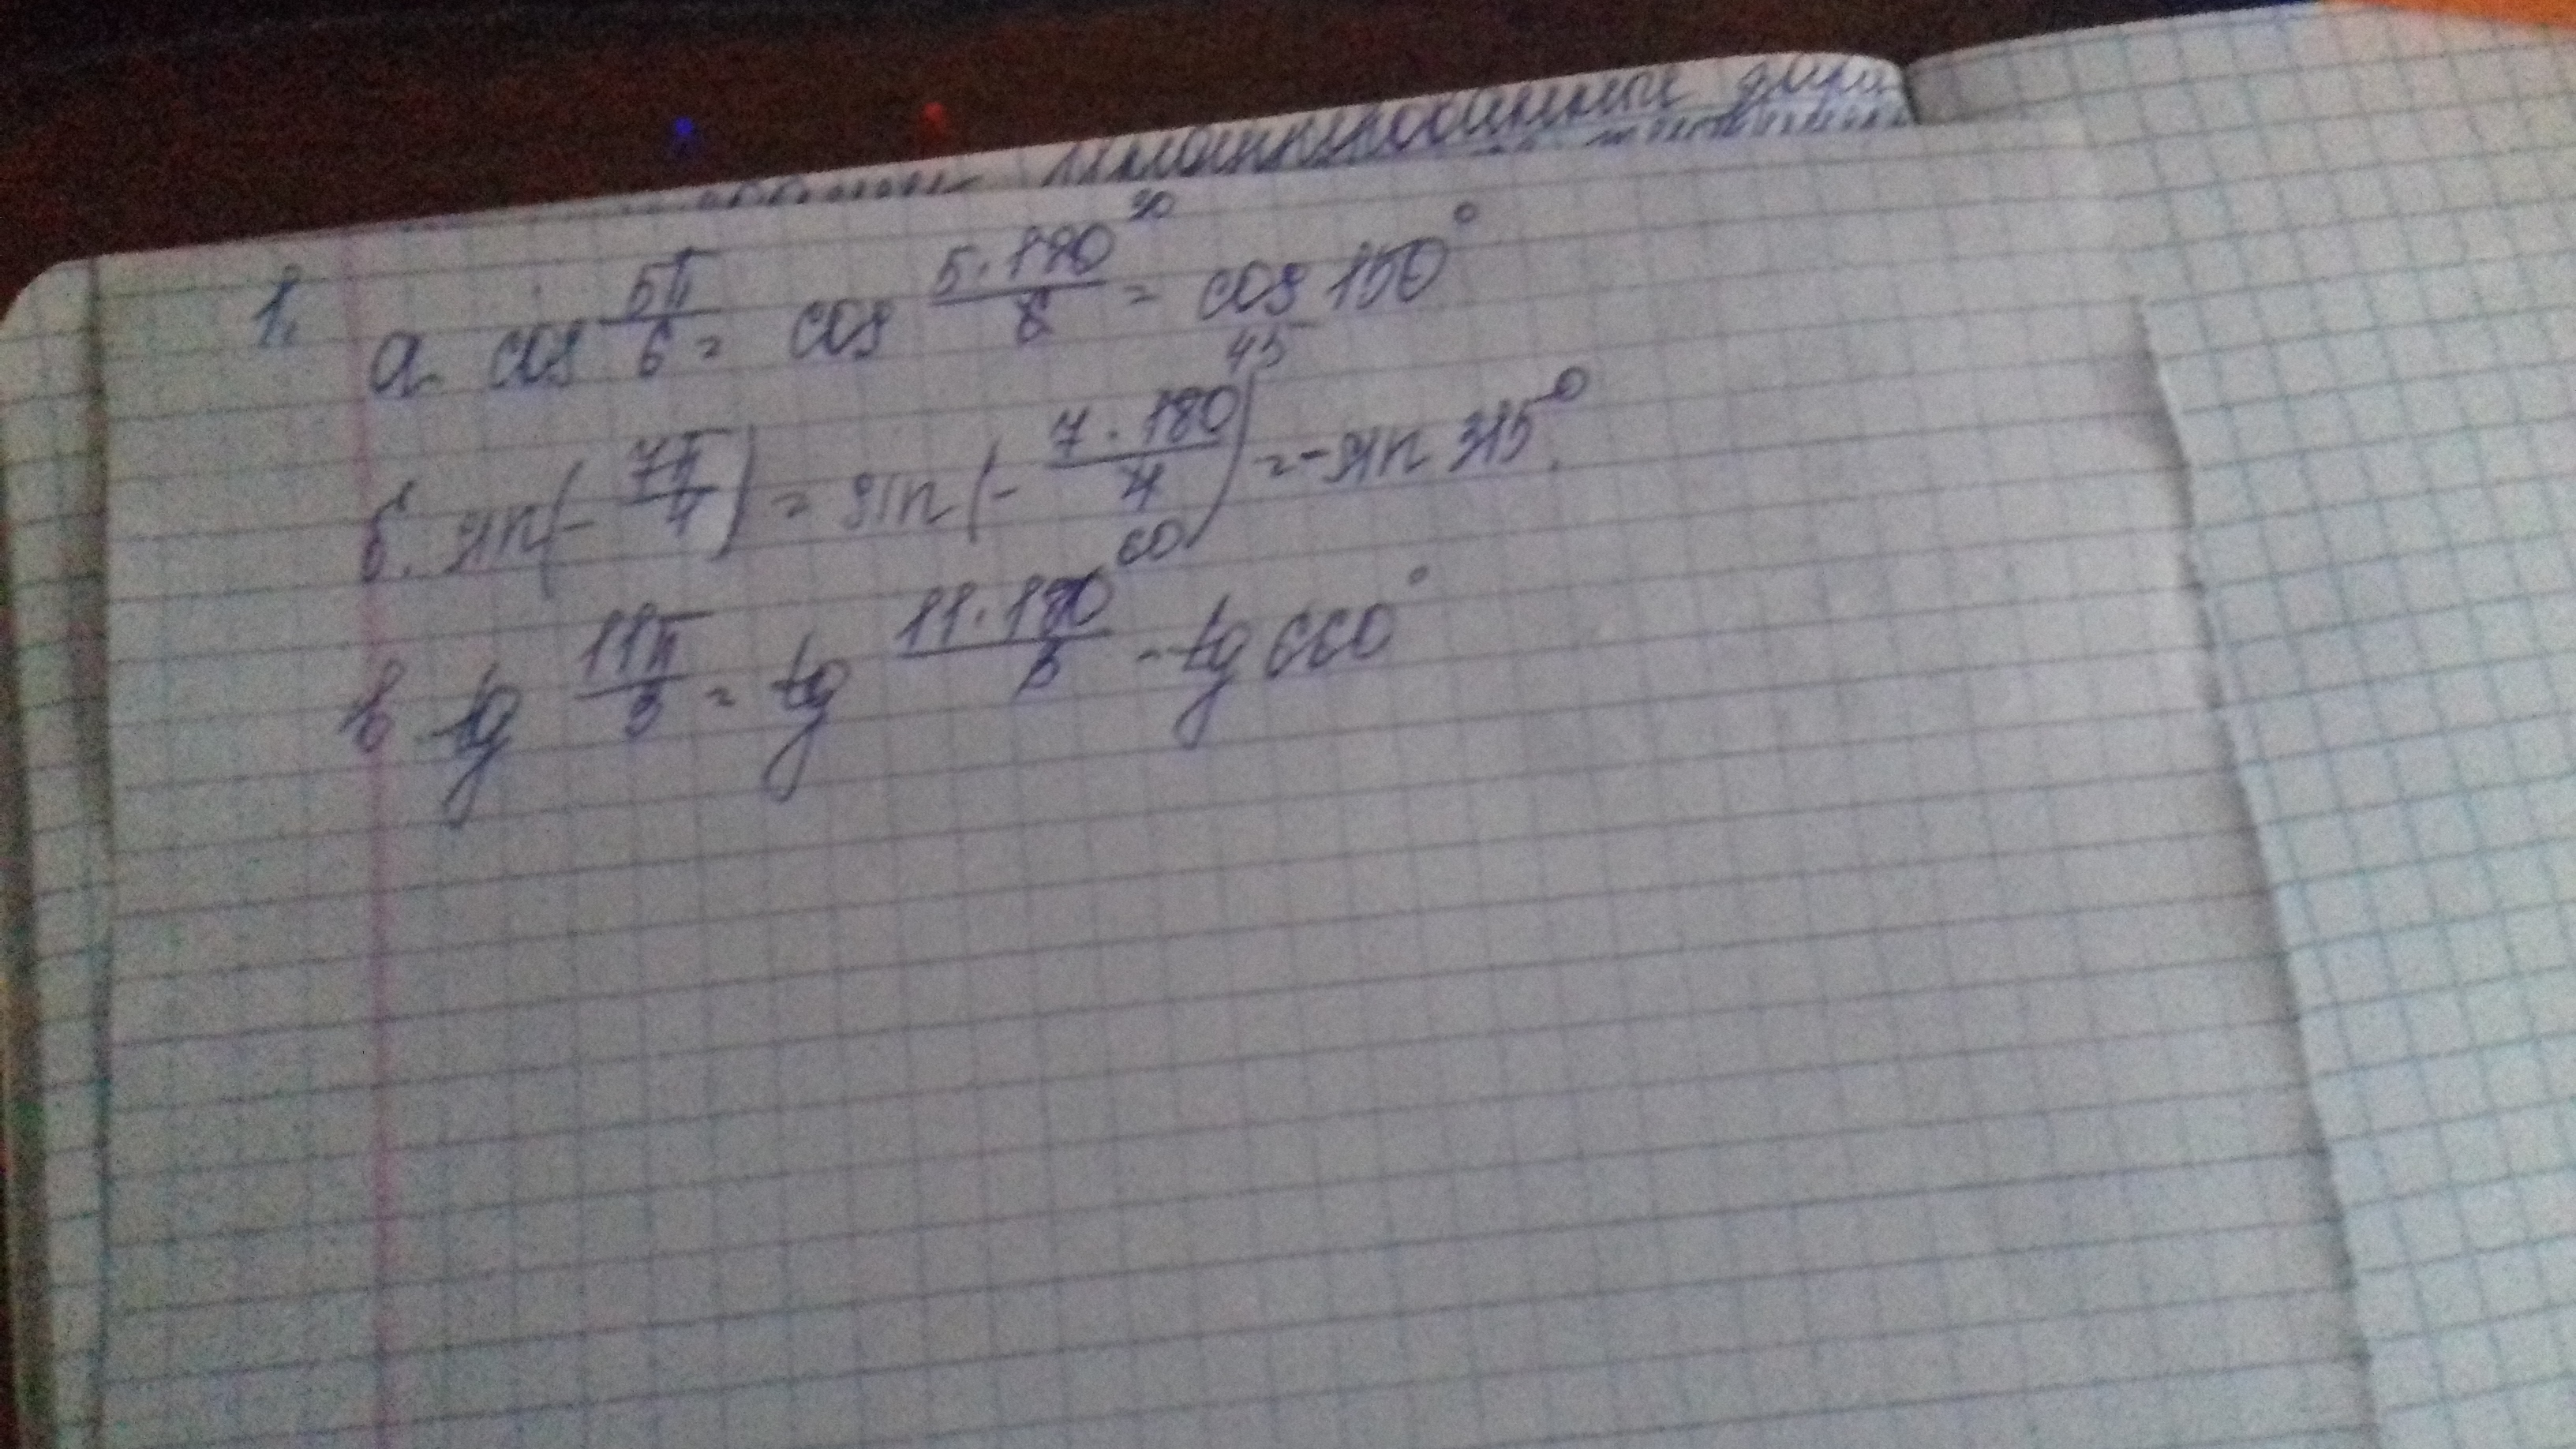 1.
а. cos 5π/6 = cos 5·180/6 30 = cos 150°
б. sin(- 7π/4) = sin(- 7·180/4 45) = -sin 315°
в tg 11π/3 = tg 11·180/3 60 - tg 660°